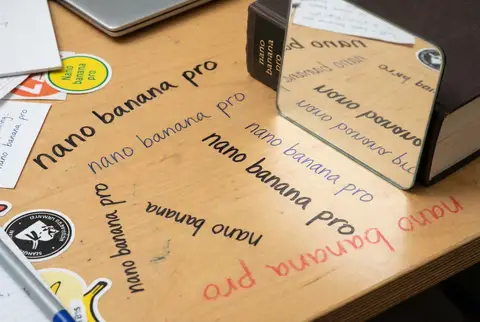 nano
banana
pro
Nano
banana
pro
nano banana pro
nano banana pro
nano banana pro
nano banana pro
nano banana pro
nano banana
nano banana pro
nano banana pro
nano banana pro